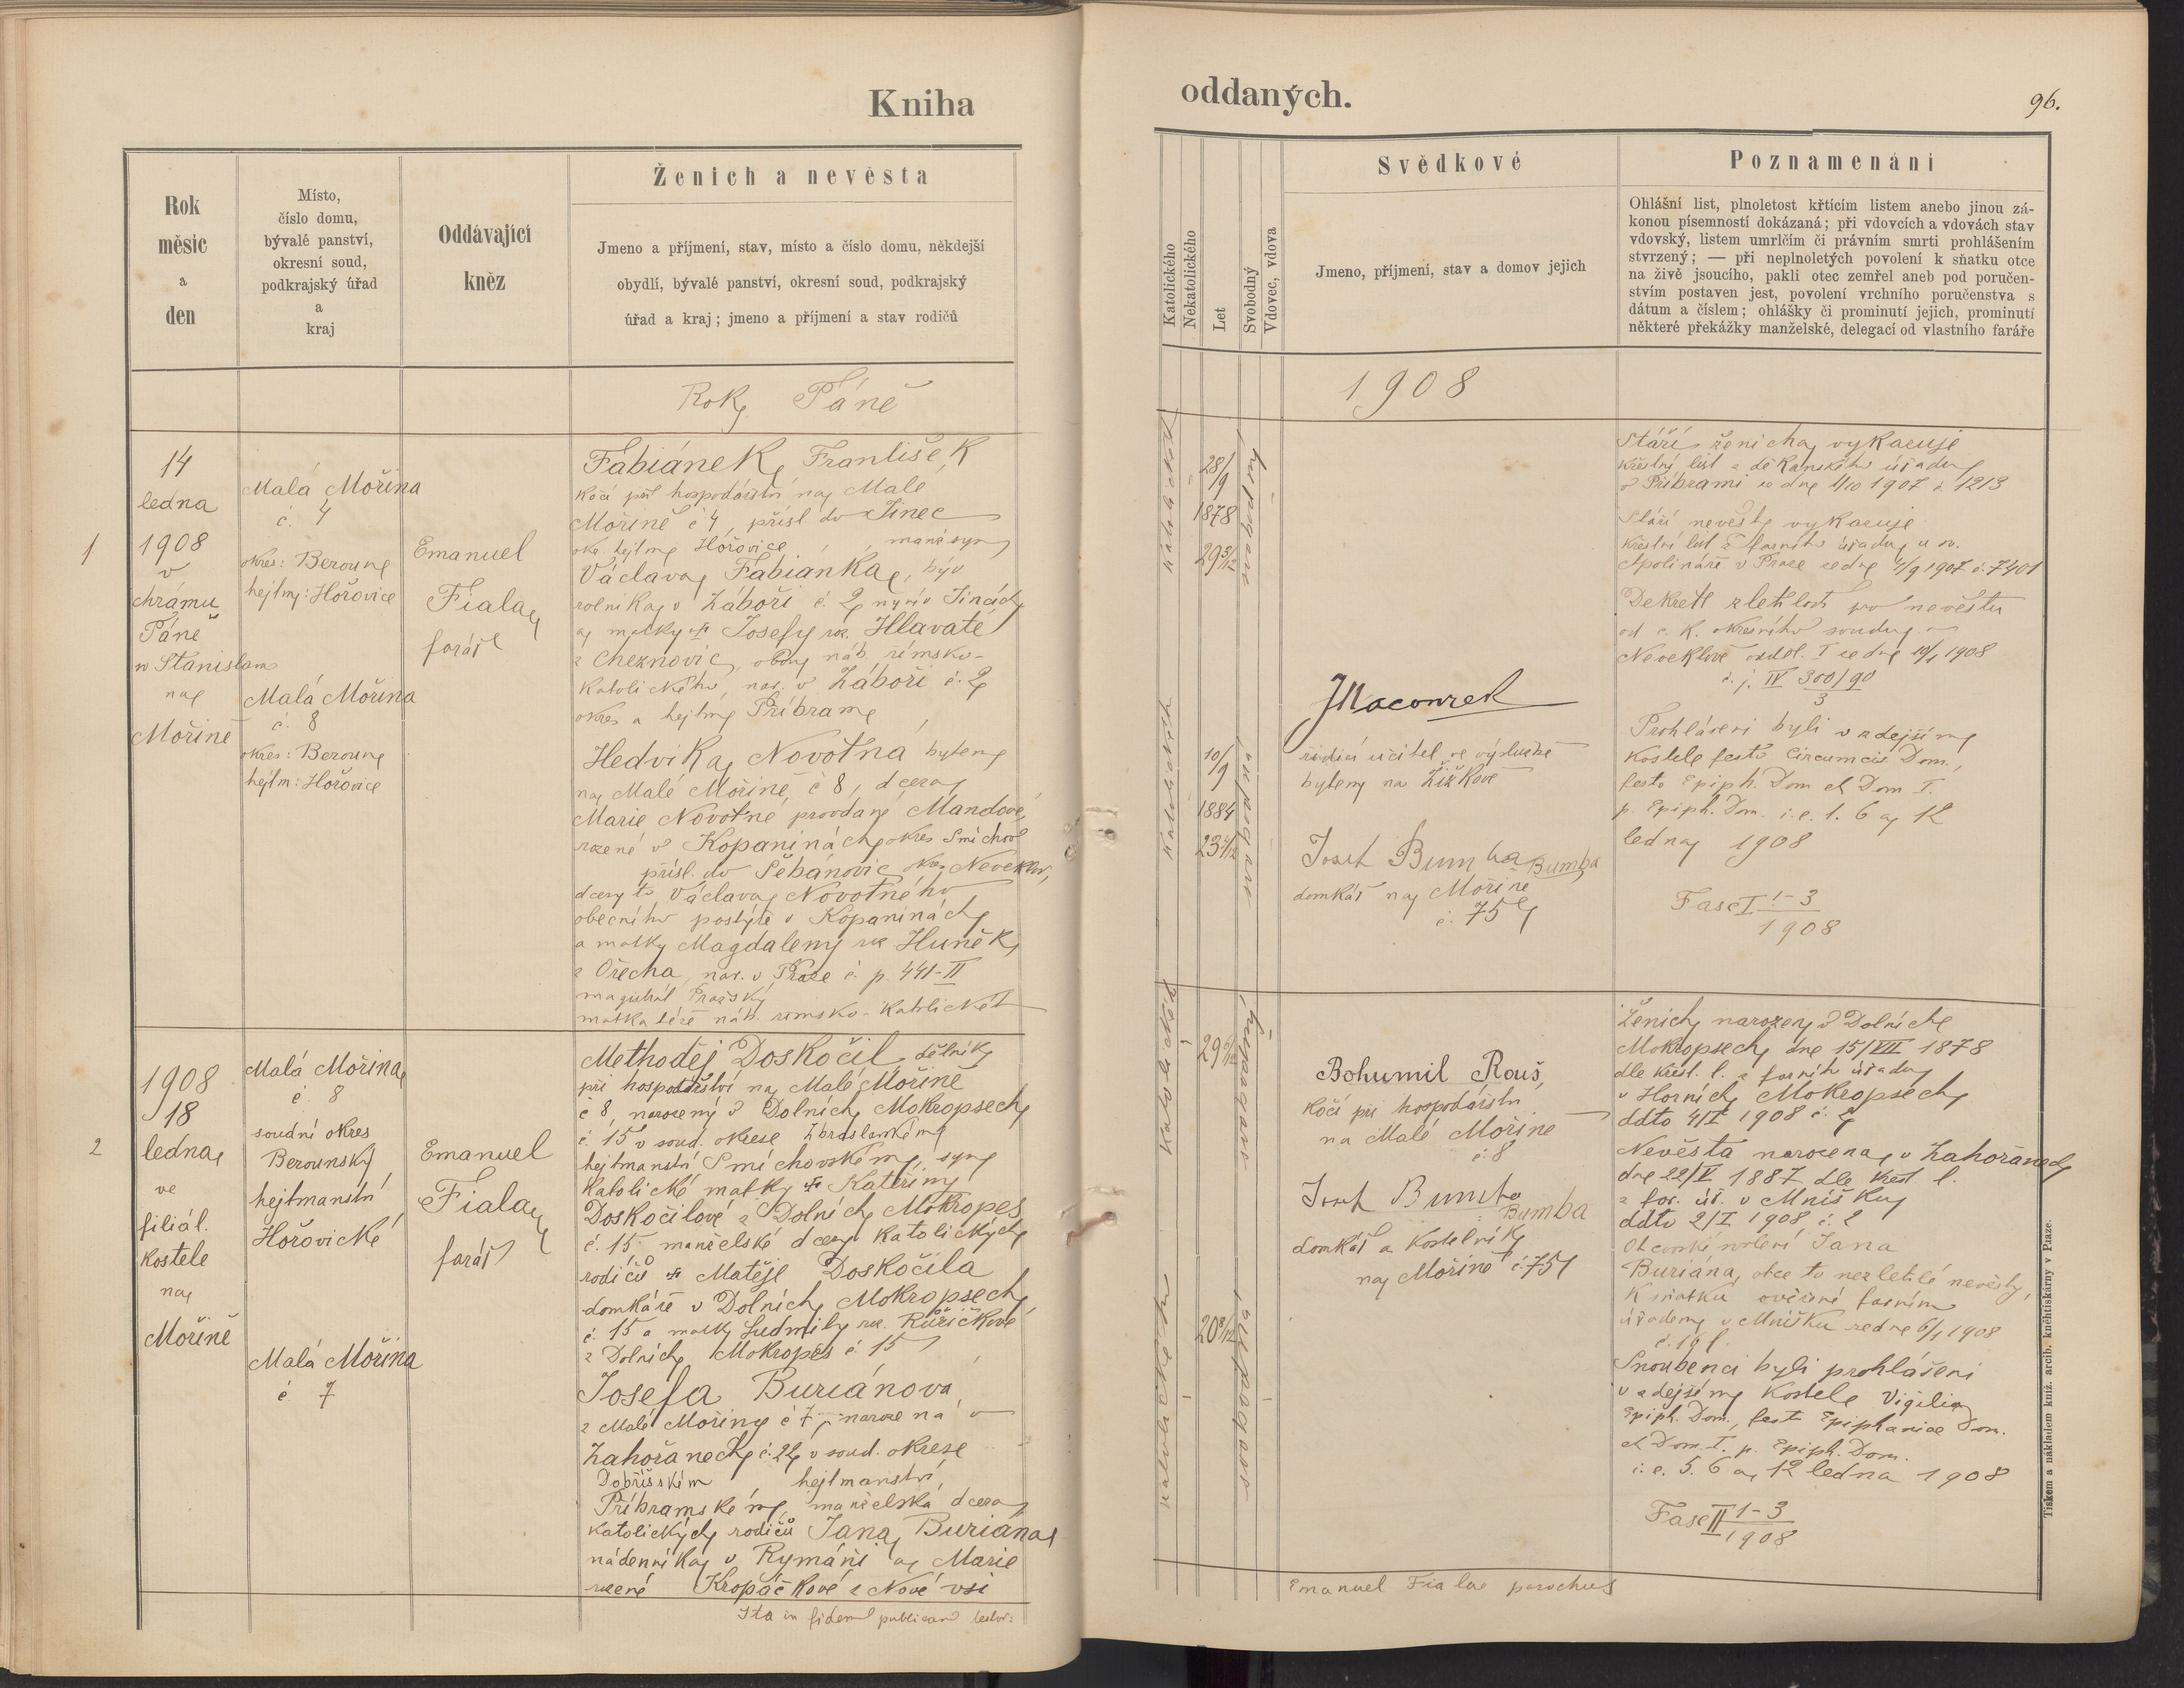 Kniha
Rok
měsíc
a
den
Místo,
číslo domu,
bývalé panství,
okresní soud,
podkrajský úřad
a
kraj
Oddávající
kněz
Ženich a nevěsta
Jmeno a příjmení, stav, místo a číslo domu, někdejší
obydlí, bývalé panství, okresní soud, podkrajský
úřad a kraj; jmeno a příjmení a stav rodičů
Roku Páně
1
14
ledna
1908
v
chrámu
Páně
na
Mořině
Malá Mořina
č. 4
okres: Beroun
hejtm: Hořovice
Malá Mořina
č. 8
okres: Beroun
hejtm: Hořovice
Emanuel
Fiala
farář
Fabiánek František
kočí při hospodářství na Malé
Mořině č 4, přísl. do Jinec
okr. hejtm Hořovice, man. syn
Václava Fabiánka, býv
rolníka v Záboří č. 2 nyní v Jincích
a matky Josefy roz. Hlavaté
z Cheznovic, oba náb. římsko-
katolického, nar. v Záboří č. 2
okres a hejtm Příbram
Hedvika Novotná bytem
na Malé Mořině č 8, dcera
Marie Novotné provdané Mandové,
rozené v Kopaninách okres Smíchov
přísl. do Šebáňovic okr. Neveklov,
dcery to Václava Novotného
obecního postýře v Kopaninách
a matky Magdaleny roz Huněk
z Ořecha, nar. v Praze č. p. 441-II
magistrát Pražský
matka též náb. římsko-katolického
2
1908
18
ledna
ve
filiál.
kostele
na
Mořině
Malá Mořina
č 8
soudní okres
Berounský
hejtmanství
Hořovické
Malá Mořina
č 7
Emanuel
Fiala
farář
Methoděj Doskočil, dělník
při hospodářství na Malé Mořině
č 8, narozený v Dolních Mokropsech
č. 15 v soud. okrese Zbraslavském
hejtmanství Smíchovském, syn
katolické matky Kateřiny
Doskočilové z Dolních Mokropes
č. 15 manželské dcery katolických
rodičů Matěje Doskočila
domkáře v Dolních Mokropsech
č. 15 a matky Ludmily roz. Růžičkové
z Dolních Mokropes č 15
Josefa Buriánová
z Malé Mořiny č 7, narozená v
Zahořanech č. 22 v soud. okrese
Dobříšském hejtmanství
Příbramském, manželská dcera
katolických rodičů Jana Buriána
nádeníka v Rymáni a Marie
rozené Kropáčkové z Nové vsi
Ita in fidem publicam testor:
oddaných.
96.
Katolického
Nekatolického
Let
Svobodný
Vdovec, vdova
Svědkové
Jmeno, příjmení, stav a domov jejich
Poznamenání
Ohlášní list, plnoletost křtícím listem anebo jinou zá-
konou písemností dokázaná; při vdovcích a vdovách stav
vdovský, listem umrlčím či právním smrti prohlášením
stvrzený; — při neplnoletých povolení k sňatku otce
na živě jsoucího, pakli otec zemřel aneb pod poručen-
stvím postaven jest, povolení vrchního poručenstva s
dátum a číslem; ohlášky či prominutí jejich, prominutí
některé překážky manželské, delegací od vlastního faráře
1908
28/9
1878
29 3/12
10/9
1884
23 4/12
řídící učitel ve výslužbě
bytem na Žižkově
Josef Bumba Bumba
domkář na Mořině
č. 75
Stáří ženicha vykazuje
křestní list z děkanského úřadu
v Příbrami ze dne 1/10 1907 č. 1213
Stáří nevěsty vykazuje
křestní list z farního úřadu u sv.
Apolináře v Praze ze dne 4/9 1907 č. 7401
Dekret zletilosti pro nevěstu
od c. k. okresního soudu v
Neveklově odděl. I ze dne 10/1 1908
č. j. IV 300/90
3
Prohlášeni byli v zdejším
kostele festo Circumcis. Dom.,
festo Epiph. Dom et Dom I.
p. Epiph. Dom. i. e. 1. 6 a 12
ledna 1908
Fasc I 1-3
1908
29 6/12
20 8/12
Bohumil Rouš,
kočí při hospodářství
na Malé Mořině
č. 8
Josef Bumba
Bumba
domkář a kostelník
na Mořině č. 75
Ženich narozen v Dolních
Mokropsech dne 15/VII 1878
dle křest. l. z farního úřadu
v Horních Mokropsech
ddto 4/I 1908 č. 2
Nevěsta narozena v Zahořanech
dne 22/V 1887 dle křest. l.
z far. úř. v Mníšku
ddto 2/I 1908 č. 2
Otcovské svolení Jana
Buriána, otce to nezletilé nevěsty,
k sňatku ověřené farním
úřadem v Mníšku ze dne 6/1 1908
Snoubenci byli prohlášeni
v zdejším kostele Vigilia
Epiph. Dom., festo Epiphaniae Dom.
et Dom. I. p. Epiph. Dom.
i. e. 5. 6 a 12 ledna 1908
Fasc II 1-3
1908
Emanuel Fiala parochus
Tiskem a nákladem kníž. arcib. knihtiskárny v Praze.